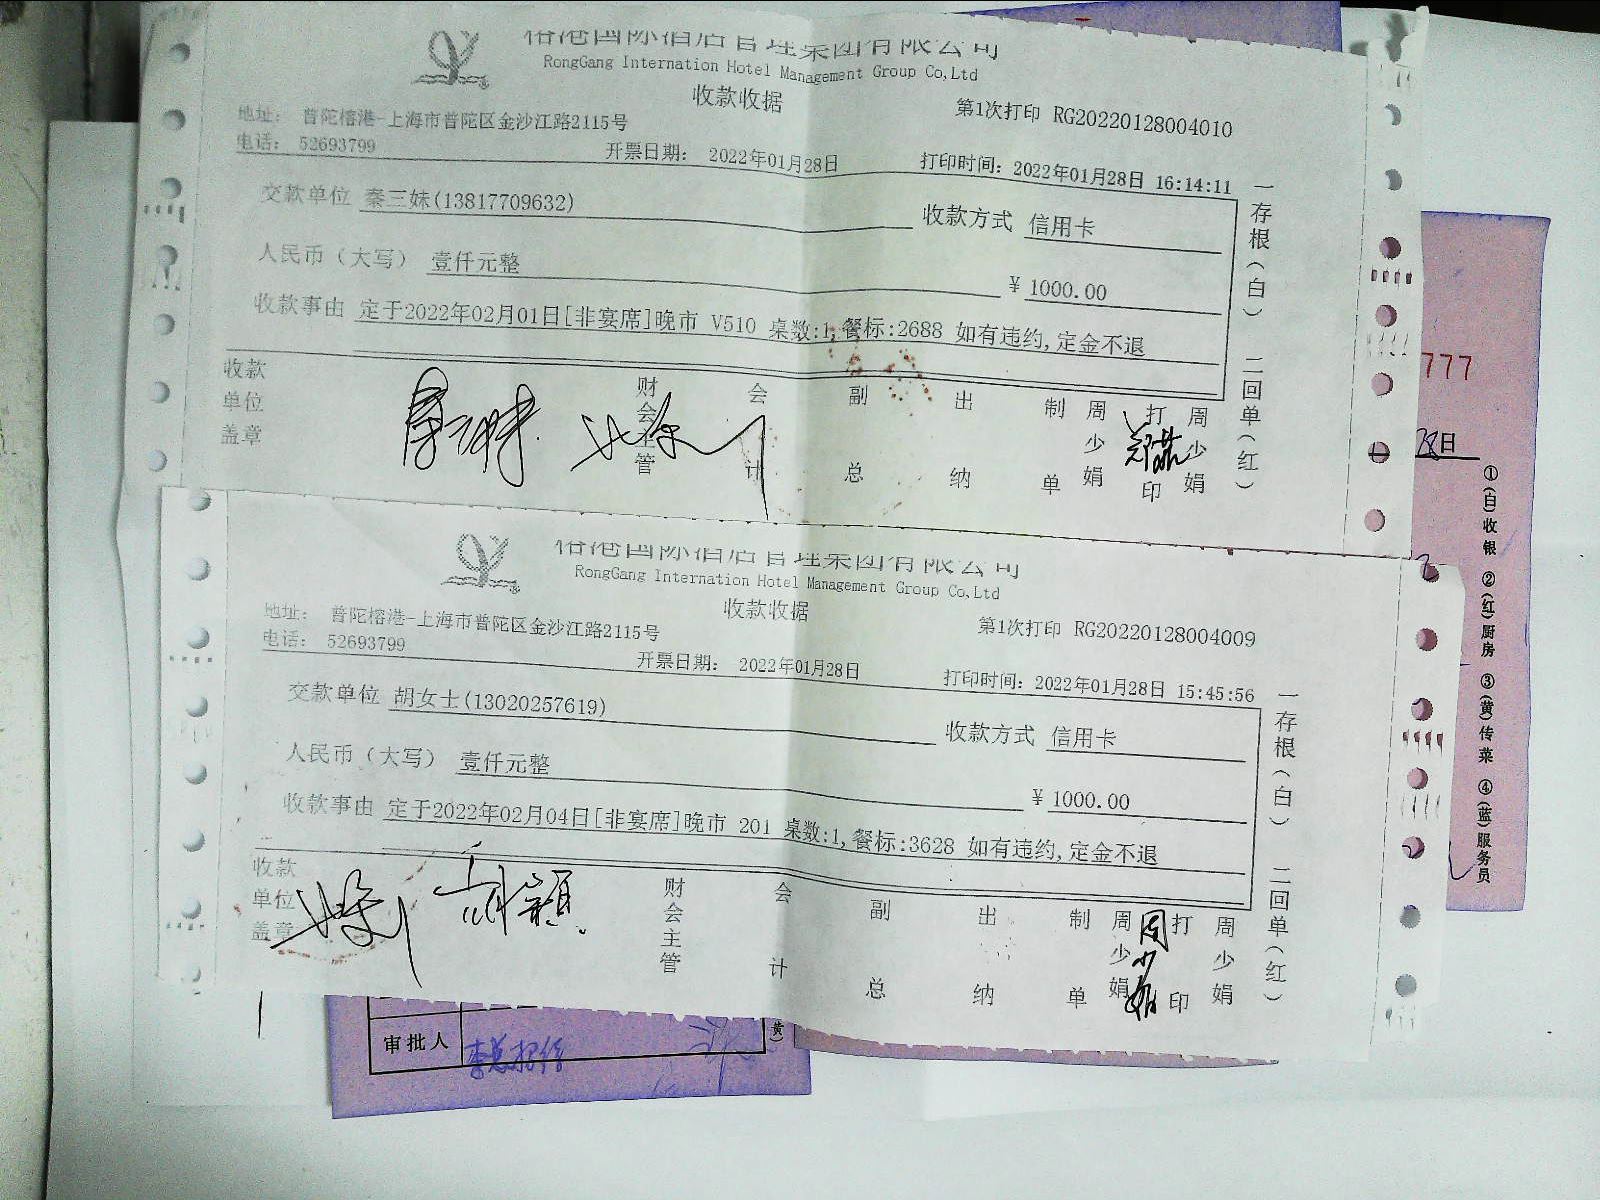 榕港国际酒店管理集团有限公司
RongGang Internation Hotel Management Group Co,Ltd
收款收据
第1次打印 RG20220128004010
地址： 普陀榕港-上海市普陀区金沙江路2115号
电话： 52693799
开票日期： 2022年01月28日
打印时间：2022年01月28日 16:14:11
交款单位 秦三妹(13817709632)
收款方式 信用卡
人民币（大写） 壹仟元整
￥ 1000.00
收款事由 定于2022年02月01日[非宴席]晚市 V510 桌数:1,餐标:2688 如有违约,定金不退
一存根(白) 二回单(红)
收款单位盖章
财会主管 会计 副总 出纳 制单 周少娟 打印 周少娟
榕港国际酒店管理集团有限公司
RongGang Internation Hotel Management Group Co,Ltd
收款收据
第1次打印 RG20220128004009
地址： 普陀榕港-上海市普陀区金沙江路2115号
电话： 52693799
开票日期： 2022年01月28日
打印时间：2022年01月28日 15:45:56
交款单位 胡女士(13020257619)
收款方式 信用卡
人民币（大写） 壹仟元整
￥ 1000.00
收款事由 定于2022年02月04日[非宴席]晚市 201 桌数:1,餐标:3628 如有违约,定金不退
一存根(白) 二回单(红)
收款单位盖章
财会主管 会计 副总 出纳 制单 周少娟 打印 周少娟
周少娟
777
28日
①(白)收银 ②(红)厨房 ③(黄)传菜 ④(蓝)服务员
审批人
黄)